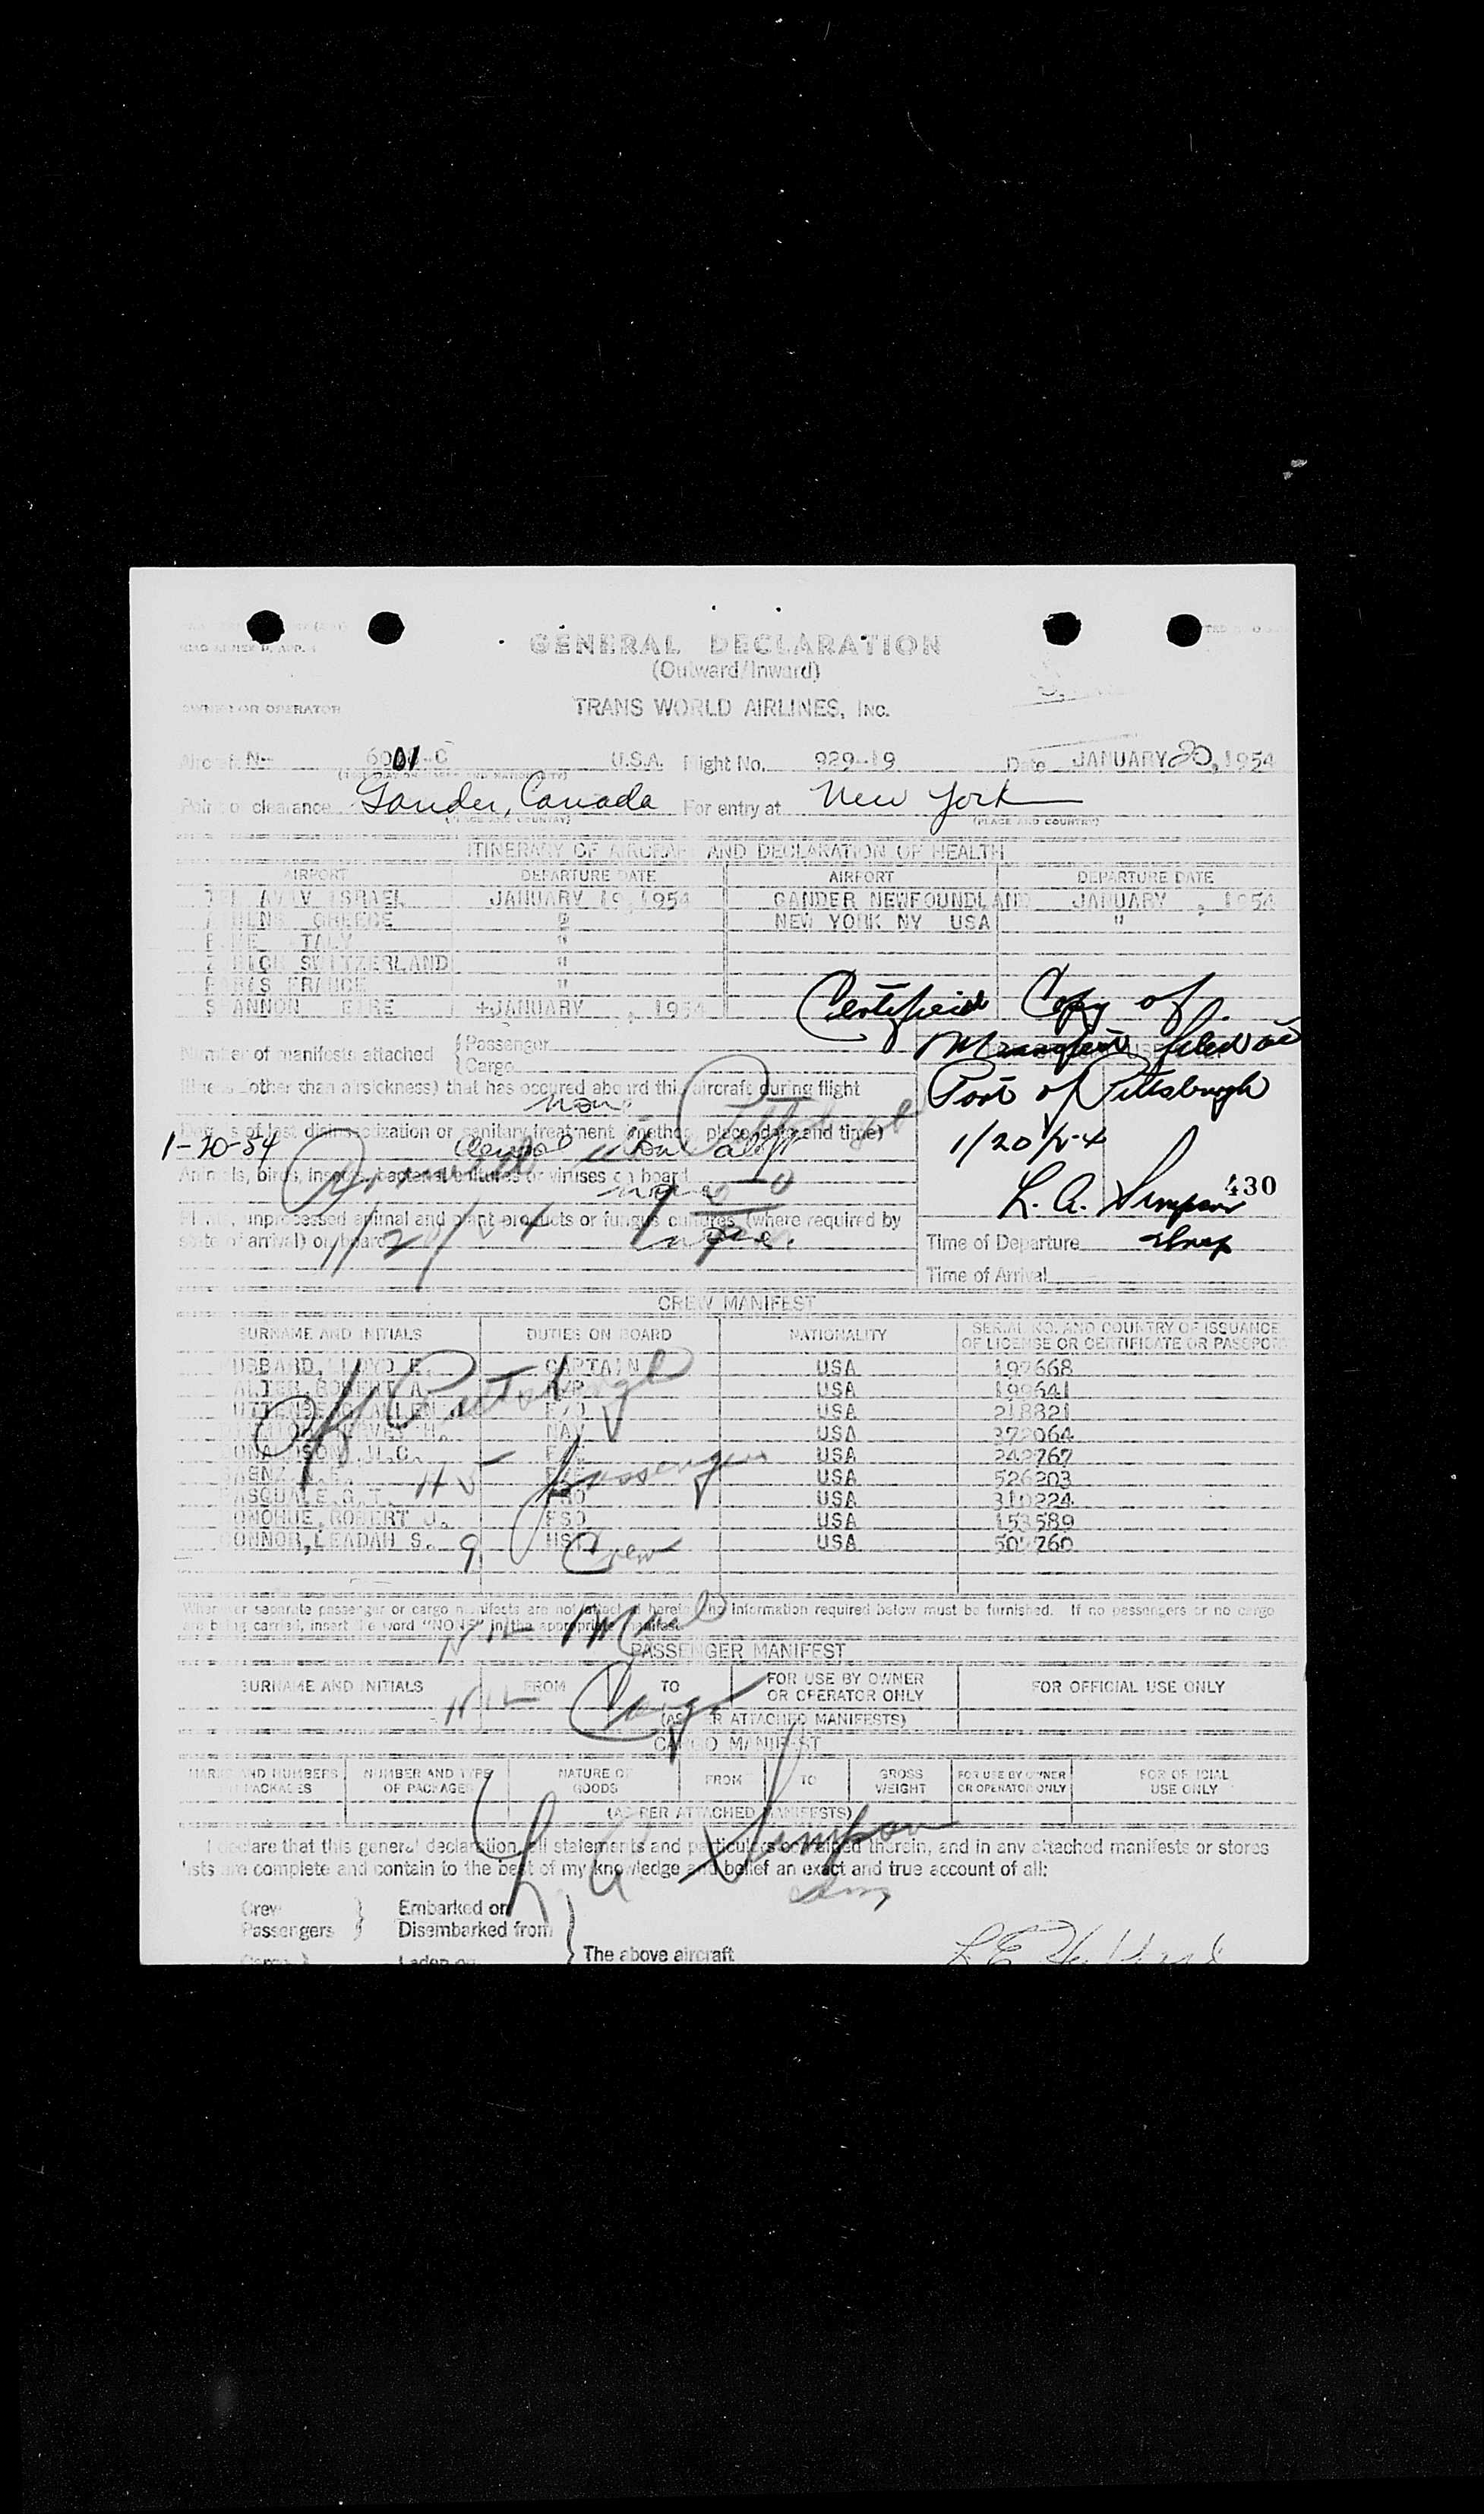 GENERAL DECLARATION
(Outward/Inward)
OWNER OR OPERATOR TRANS WORLD AIRLINES, INC.
Aircraft N- 6001-C U.S.A. Flight No. 929-19 Date JANUARY 20, 1954
Point of clearance Gander, Canada For entry at New York
(PLACE AND COUNTRY) (PLACE AND COUNTRY)
ITINERARY OF AIRCRAFT AND DECLARATION OF HEALTH
AIRPORT DEPARTURE DATE AIRPORT DEPARTURE DATE
TEL AVIV ISRAEL JANUARY 19, 1954 GANDER NEWFOUNDLAND JANUARY , 1954
ATHENS GREECE " NEW YORK NY USA "
ROME ITALY "
ZURICH SWITZERLAND "
PARIS FRANCE "
SHANNON EIRE JANUARY , 1954
Certified Copy of
Manifest filed at
Port of Pittsburgh
1/20/54
L. A. Simpson
430
Number of manifests attached { Passenger
Cargo
Illness (other than airsickness) that has occured aboard the aircraft during flight
None
Details of last disinsectization or sanitary treatment (method, place, date and time)
1-20-54
Animals, birds, insects, bacterial cultures or viruses on board
none
Plants, unprocessed animal and plant products or fungus cultures (where required by
state of arrival) on board
Time of Departure
Time of Arrival
Pittsburgh
1/20/54
CREW MANIFEST
SURNAME AND INITIALS DUTIES ON BOARD NATIONALITY SERIAL NO. AND COUNTRY OF ISSUANCE
OF LICENSE OR CERTIFICATE OR PASSPORT
HUBBARD, LLOYD E. CAPTAIN USA 197668
USA 199641
USA 218821
NAV USA 372064
USA 242767
USA 526203
PASQUALE, G. T. USA 310224
DONOHUE, ROBERT J. USA 153589
CONNOR, LEADAH S. USA
Pittsburgh
45 passengers
9 Crew
Whenever separate passenger or cargo manifests are not attached hereto the information required below must be furnished. If no passengers or no cargo
are being carried, insert the word "NONE" in the appropriate manifest.
Nil Mail
PASSENGER MANIFEST
SURNAME AND INITIALS FROM TO FOR USE BY OWNER
OR OPERATOR ONLY FOR OFFICIAL USE ONLY
Nil Cargo
(AS PER ATTACHED MANIFESTS)
CARGO MANIFEST
MARKS AND NUMBERS
OF PACKAGES NUMBER AND TYPE
OF PACKAGES NATURE OF
GOODS FROM TO GROSS
WEIGHT FOR USE BY OWNER
OR OPERATOR ONLY FOR OFFICIAL
USE ONLY
(AS PER ATTACHED MANIFESTS)
L. A. Simpson
I declare that this general declaration, all statements and particulars contained therein, and in any attached manifests or stores
lists are complete and contain to the best of my knowledge and belief an exact and true account of all:
Crew
Passengers } Embarked on
Disembarked from
Cargo } Laden on } The above aircraft
L E Hubbard